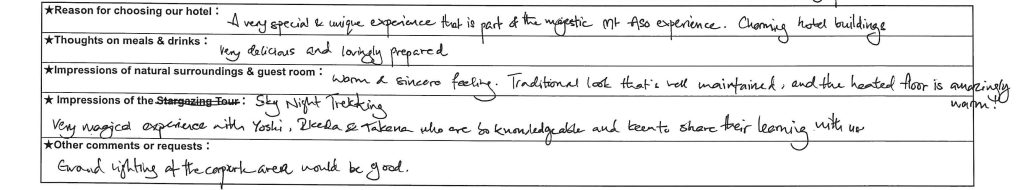 ★Reason for choosing our hotel :
A very special & unique experience that is part of the majestic Mt Aso experience. Charming hotel buildings
★Thoughts on meals & drinks :
Very delicious and lovingly prepared
★Impressions of natural surroundings & guest room : Warm & sincere feeling. Traditional look that's well maintained, and the heated floor is amazingly
warm!
★ Impressions of the Stargazing Tour : Sky Night Trekking
Very magical experience with Yoshi, Ikeda & Takena who are so knowledgeable and keen to share their learning with us
★Other comments or requests :
Ground lighting of the carpark area would be good.